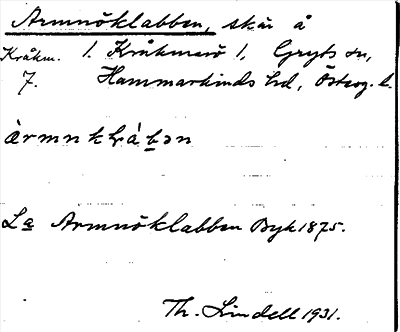 Armnöklabben, skär å
Kråkm. l. Kråkmarö 1, Gryts sn,
7. Hammarkinds hd, Östergl. l.
àrmnkḷábən
La Armnöklabben Byk 1875.
Th. Lindell 1931.